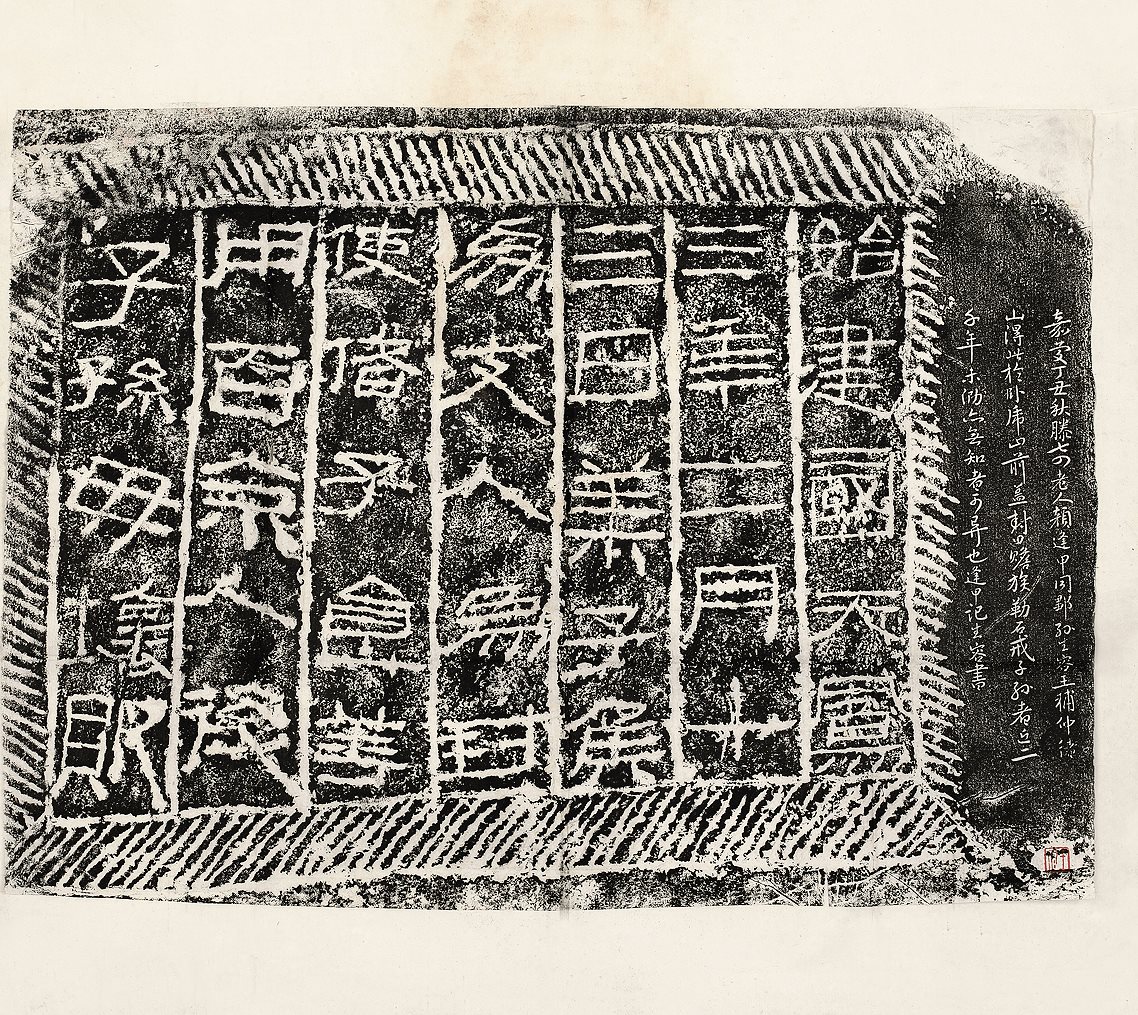 嘉慶丁丑秋滕七四老人顏逢甲同鄒孫生容王補仲緒
山得此於臥虎山前蓋封田贍族勒石戒子孫者近二
千年未泐亦無知者可異也逢甲記生容書
始建國天鳳
三年二月十
三日萊子矦
為支人為封
使偖子食等
用百余人後
子孫毋壞敗